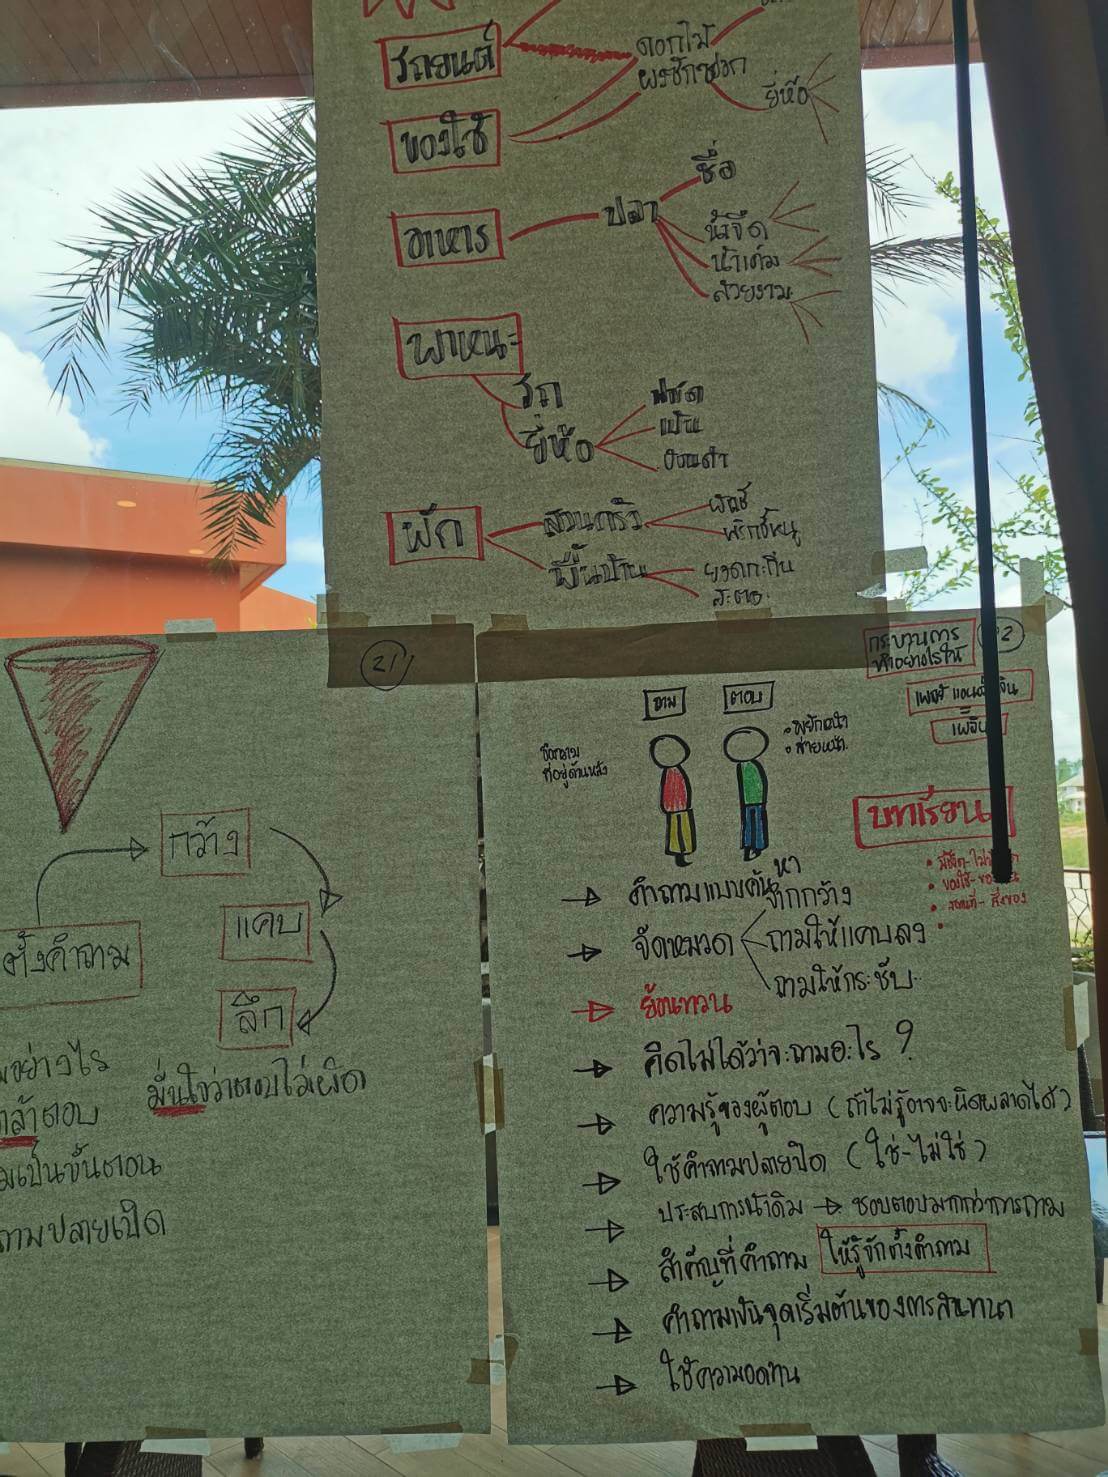 รถยนต์
ดอกไม้
ผงซักฟอก
ยี่ห้อ
ของใช้
อาหาร
ปลา
ชื่อ
น้ำจืด
น้ำเค็ม
สวยงาม
พาหนะ
รถ
ยี่ห้อ
ผัก
สวนครัว
พริกขี้หนู
พื้นบ้าน
ยอดกะถิน
สะตอ
21
กว้าง
แคบ
ลึก
ตั้งคำถาม
อย่างไร
กล้าตอบ
มั่นใจว่าตอบไม่ผิด
เป็นขั้นตอน
ถามปลายเปิด
กระบวนการ
ทำอย่างไรให้
ถาม
ตอบ
พยักหน้า
ส่ายหน้า
ข้อความ
ที่อยู่ด้านหลัง
บทเรียน
คำถามแบบค้นหา
จากกว้าง
จัดหมวด
ถามให้แคบลง
ถามให้กระชับ
ย้อนทวน
คิดไม่ได้ว่าจะถามอะไร ?
ความรู้ของผู้ตอบ (ถ้าไม่รู้อาจจะผิดพลาดได้)
ใช้คำถามปลายปิด (ใช่-ไม่ใช่)
ประสบการณ์เดิม → ชอบตอบมากกว่าการถาม
สำคัญที่คำถาม ให้รู้จักตั้งคำถาม
คำถามเป็นจุดเริ่มต้นของการสนทนา
ใช้ความอดทน